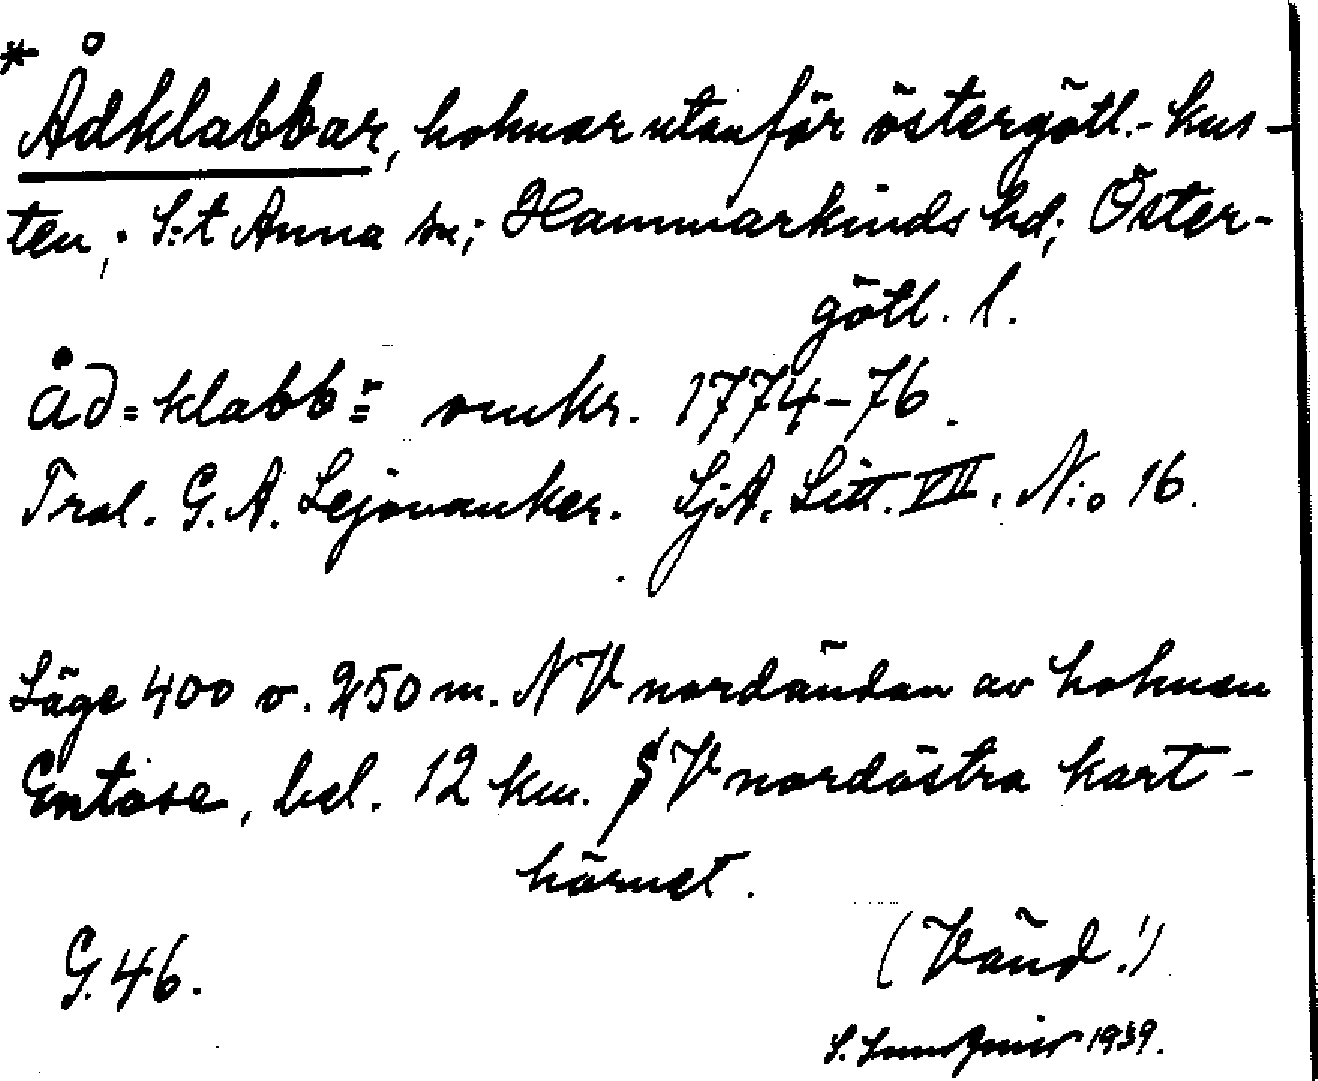 * Ådklabbar, holmar utanför östergötl.-kus-
ten; S:t Anna sn; Hammarkinds hd; Öster-
götl. l.
åd=klabb= omkr. 1774-76.
Trol. G. A. Lejonanker. SjA. Litt. VII. N:o 16.
Läge 400 o. 250 m. NV nordändan av holmen
Entose, bel. 12 km. SV nordöstra kart-
hörnet.
G. 46.
(Vänd!)
S. 1939.